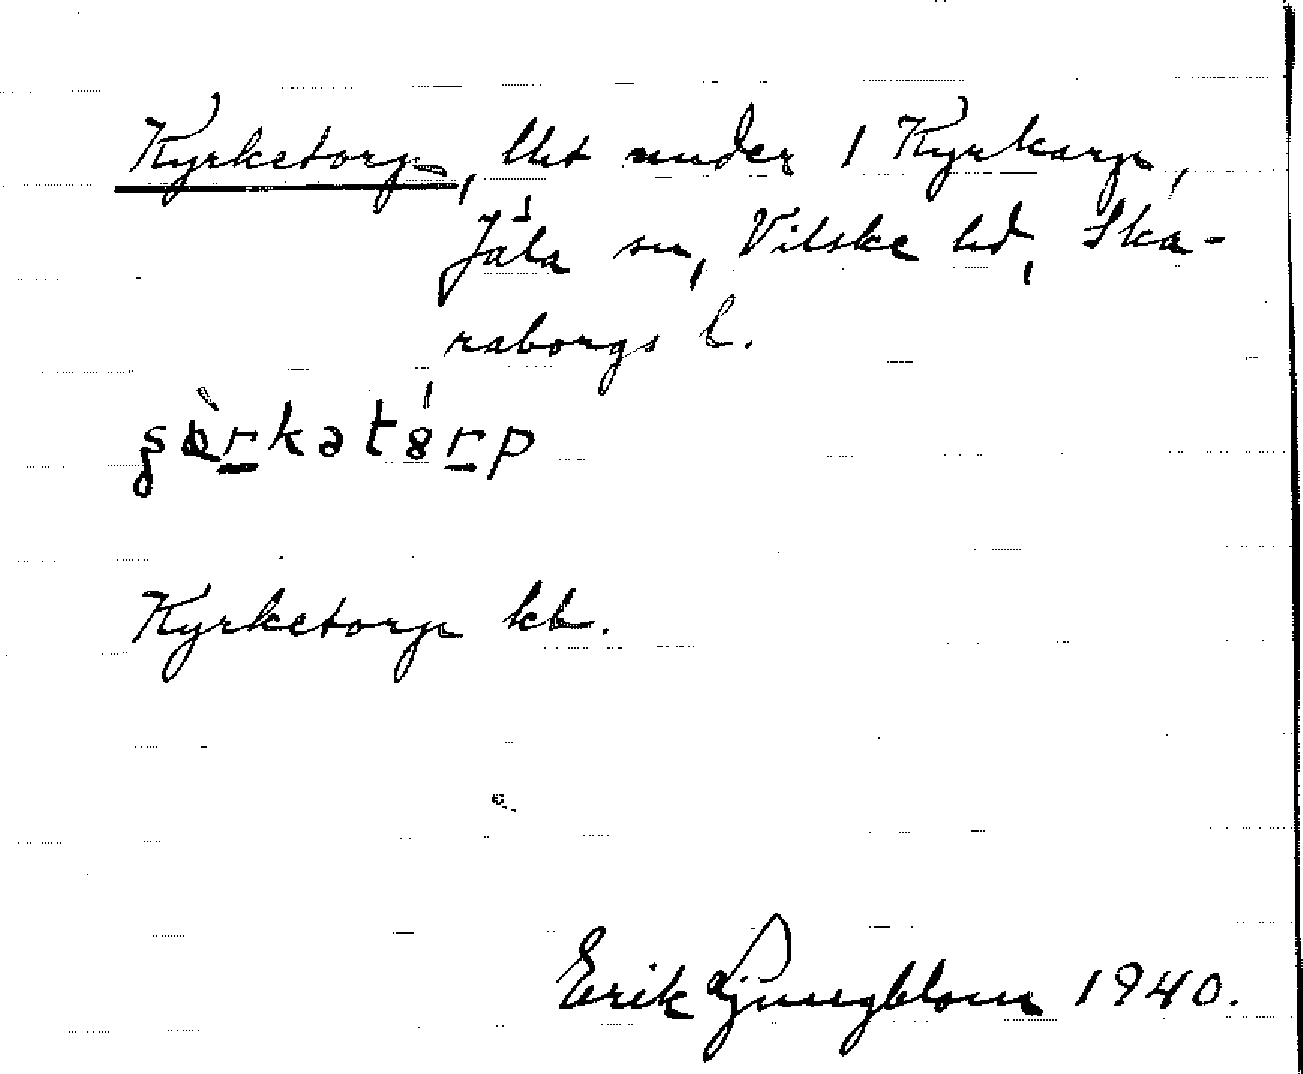 Kyrketorp, lht under 1 Kyrkarp,
Jäla sn, Vilske hd, Ska-
raborgs l.
Kyrketorp kb.
Erik Ljungblom 1940.